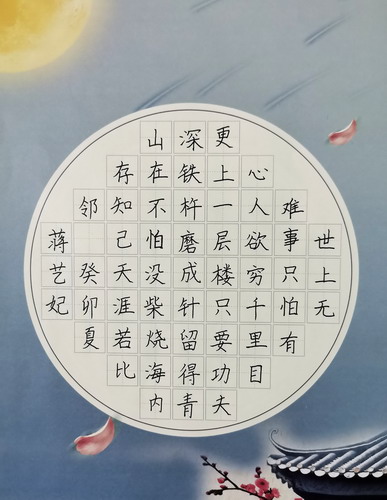 世上无
难事只怕有
心人欲穷千里目
更上一层楼只要功夫
深铁杵磨成针留得青
山在不怕没柴烧海内
存知己天涯若比
邻 癸卯夏
蒋艺妃